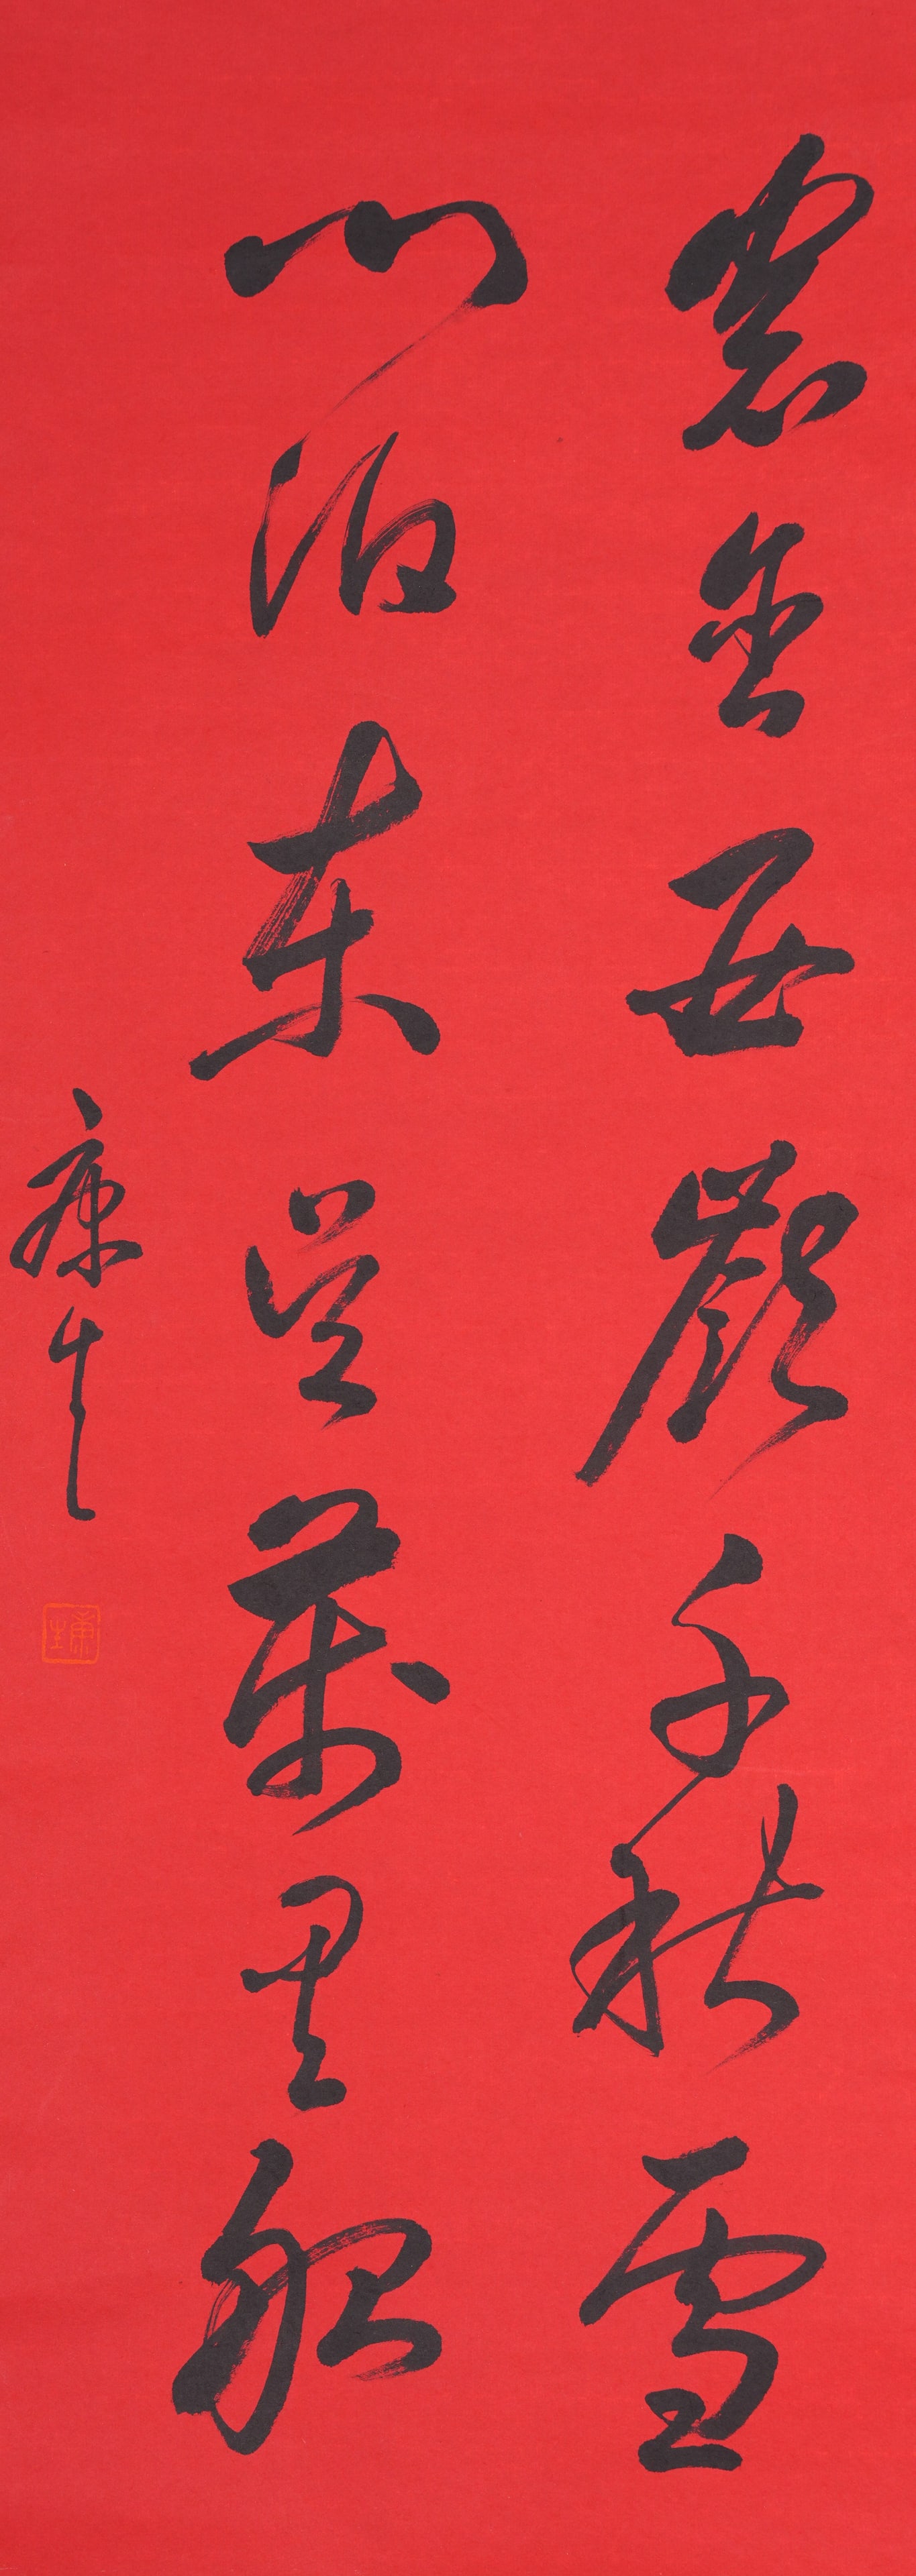 窗含西嶺千秋雪
門泊東吳萬里船
康生
康生